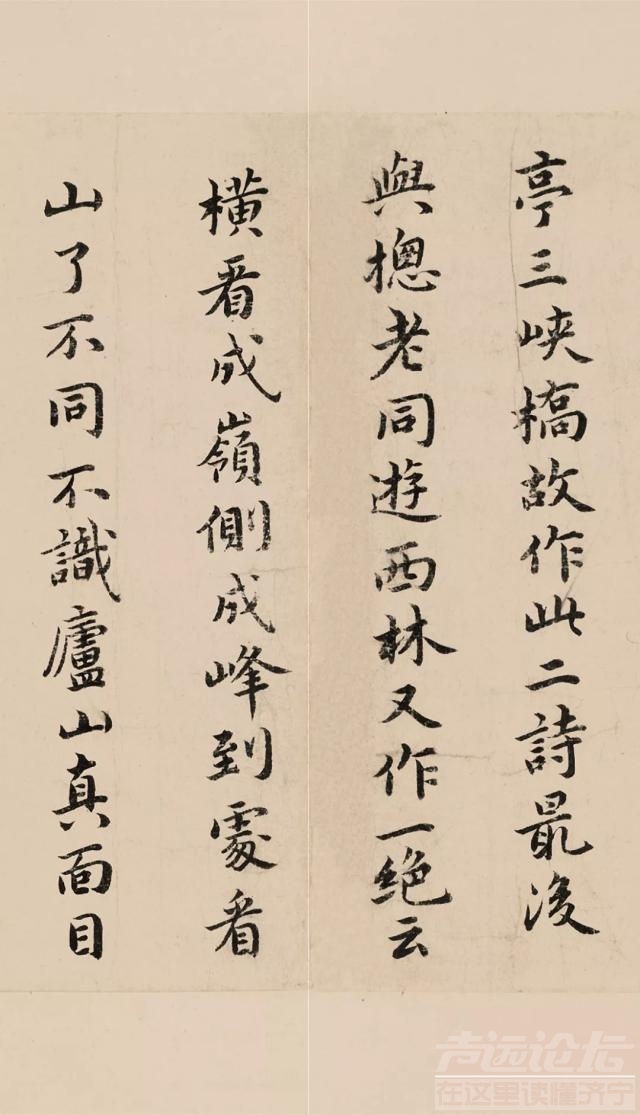 亭三峽橋故作此二詩最後
與摠老同遊西林又作一絕云
橫看成嶺側成峰到處看
山了不同不識廬山真面目
声远论坛
在这里读懂济宁